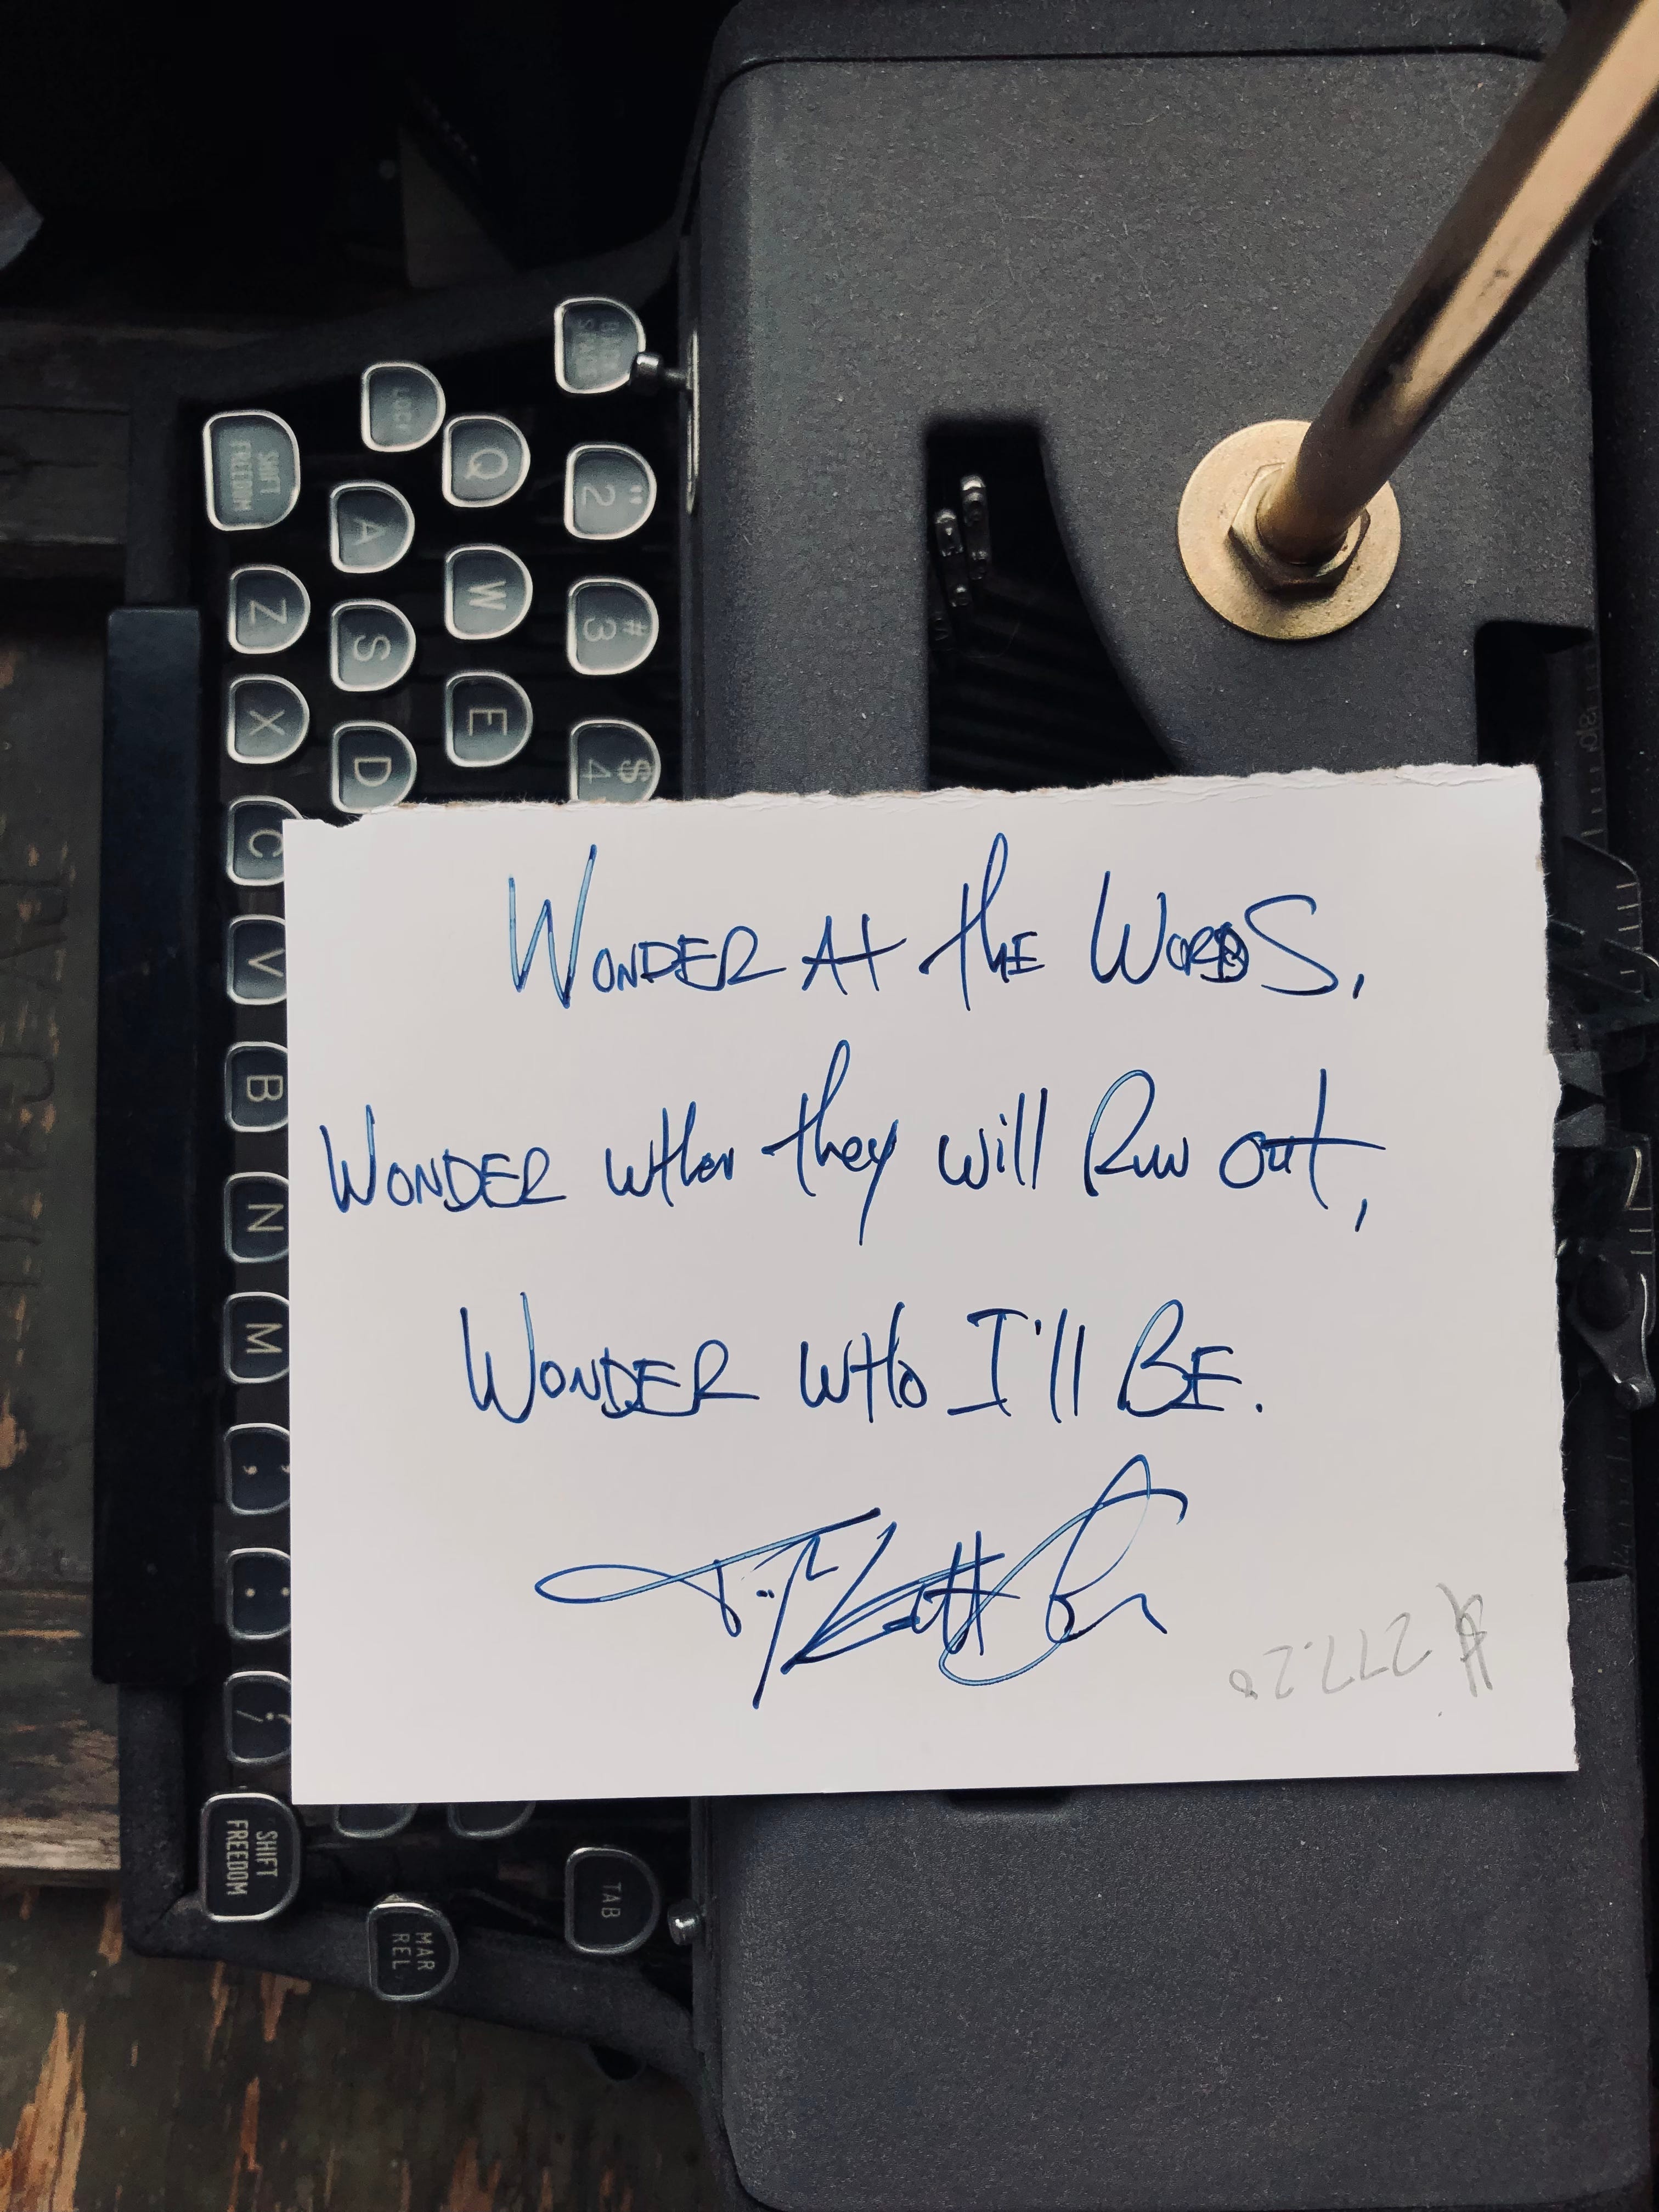 WONDER At the WORDS,
WONDER wHen they will Run out,
WONDER wHo I'll BE.
$ 277.20
BACK SPACE
LOCK
SHIFT FREEDOM
Q
" 2
A
W
# 3
Z
S
E
$ 4
X
D
C
V
B
N
M
SHIFT FREEDOM
TAB
MAR REL